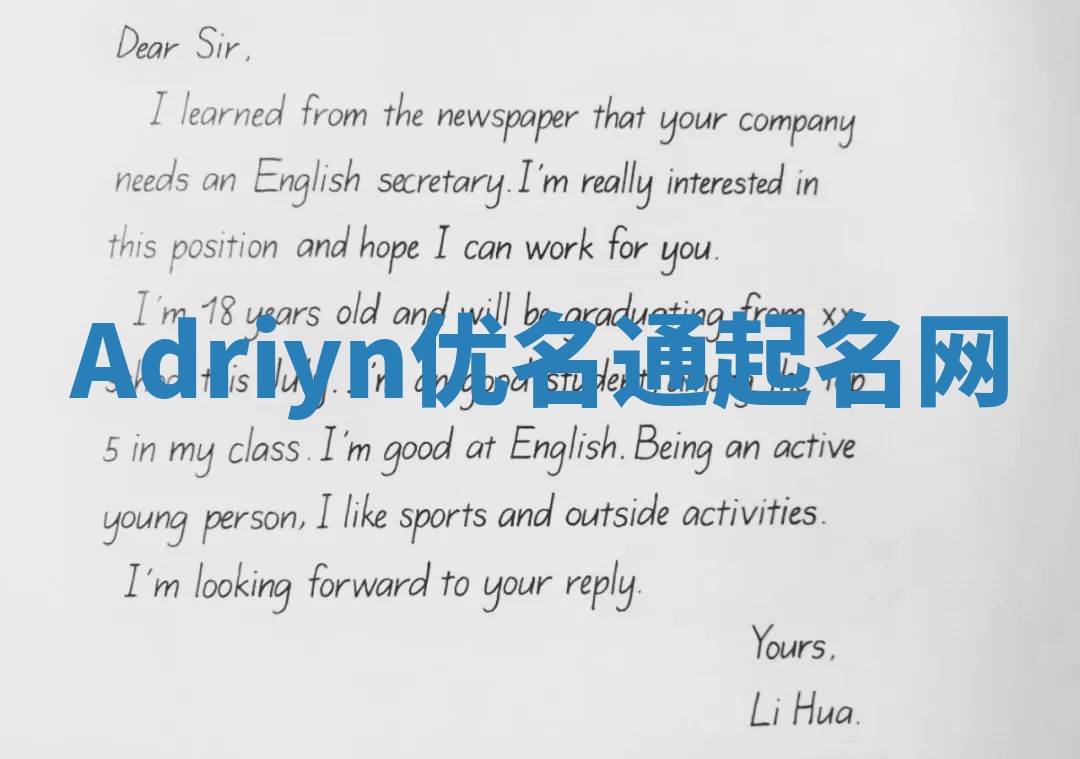 Dear Sir,
I learned from the newspaper that your company
needs an English secretary. I'm really interested in
this position and hope I can work for you.
I'm 18 years old and will be graduating from xx
Adriyn优名通起名网
this student, among the top
5 in my class. I'm good at English. Being an active
young person, I like sports and outside activities.
I'm looking forward to your reply.
Yours,
Li Hua.